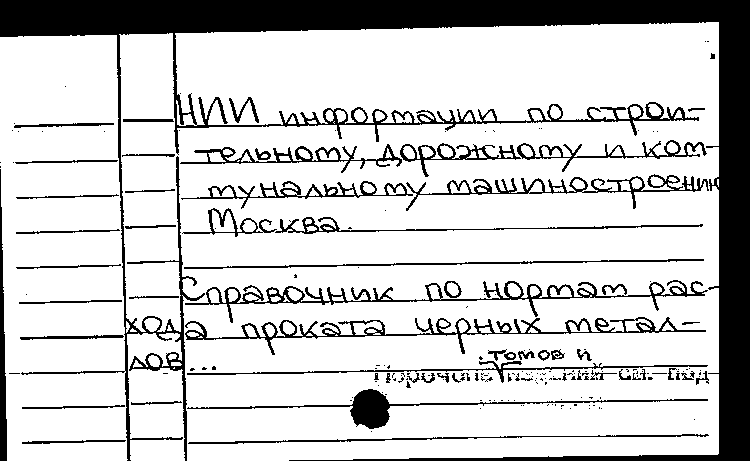 НИИ информации по строи-
тельному, дорожному и ком-
мунальному машиностроению
Москва.
Справочник по нормам рас-
хода проката черных метал-
лов...
томов и
см. под